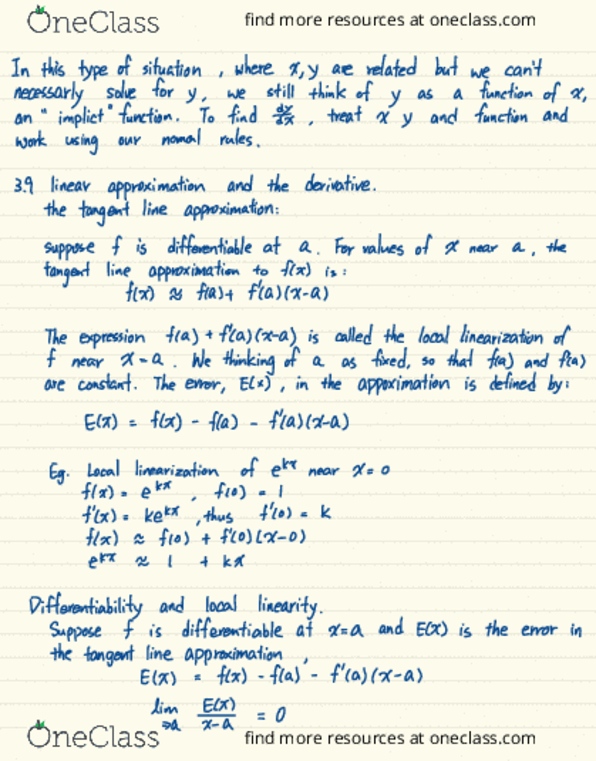 OneClass find more resources at oneclass.com
In this type of situation, where x,y are related but we can't
necessarly solve for y, we still think of y as a function of x,
an "implict" function. To find dy/dx, treat x y and function and
work using our nomal rules.
3.9 linear approximation and the derivative.
the tangent line approximation:
suppose f is differentiable at a. For values of x near a, the
tangent line approximation to f(x) is:
f(x) ≈ f(a)+ f'(a)(x-a)
The expression f(a) + f'(a)(x-a) is called the local linearization of
f near x=a. We thinking of a as fixed, so that f(a) and f'(a)
are constant. The error, E(x), in the appoximation is defined by:
E(x) = f(x) - f(a) - f'(a)(x-a)
Eg. Local linearization of e^kx near x=0
f(x) = e^kx, f(0) = 1
f'(x) = ke^kx, thus f'(0) = k
f(x) ≈ f(0) + f'(0)(x-0)
e^kx ≈ 1 + kx
Differentiability and local linearity.
Suppose f is differentiable at x=a and E(x) is the error in
the tangent line approximation,
E(x) = f(x) - f(a) - f'(a)(x-a)
lim →a E(x)/x-a = 0
OneClass find more resources at oneclass.com